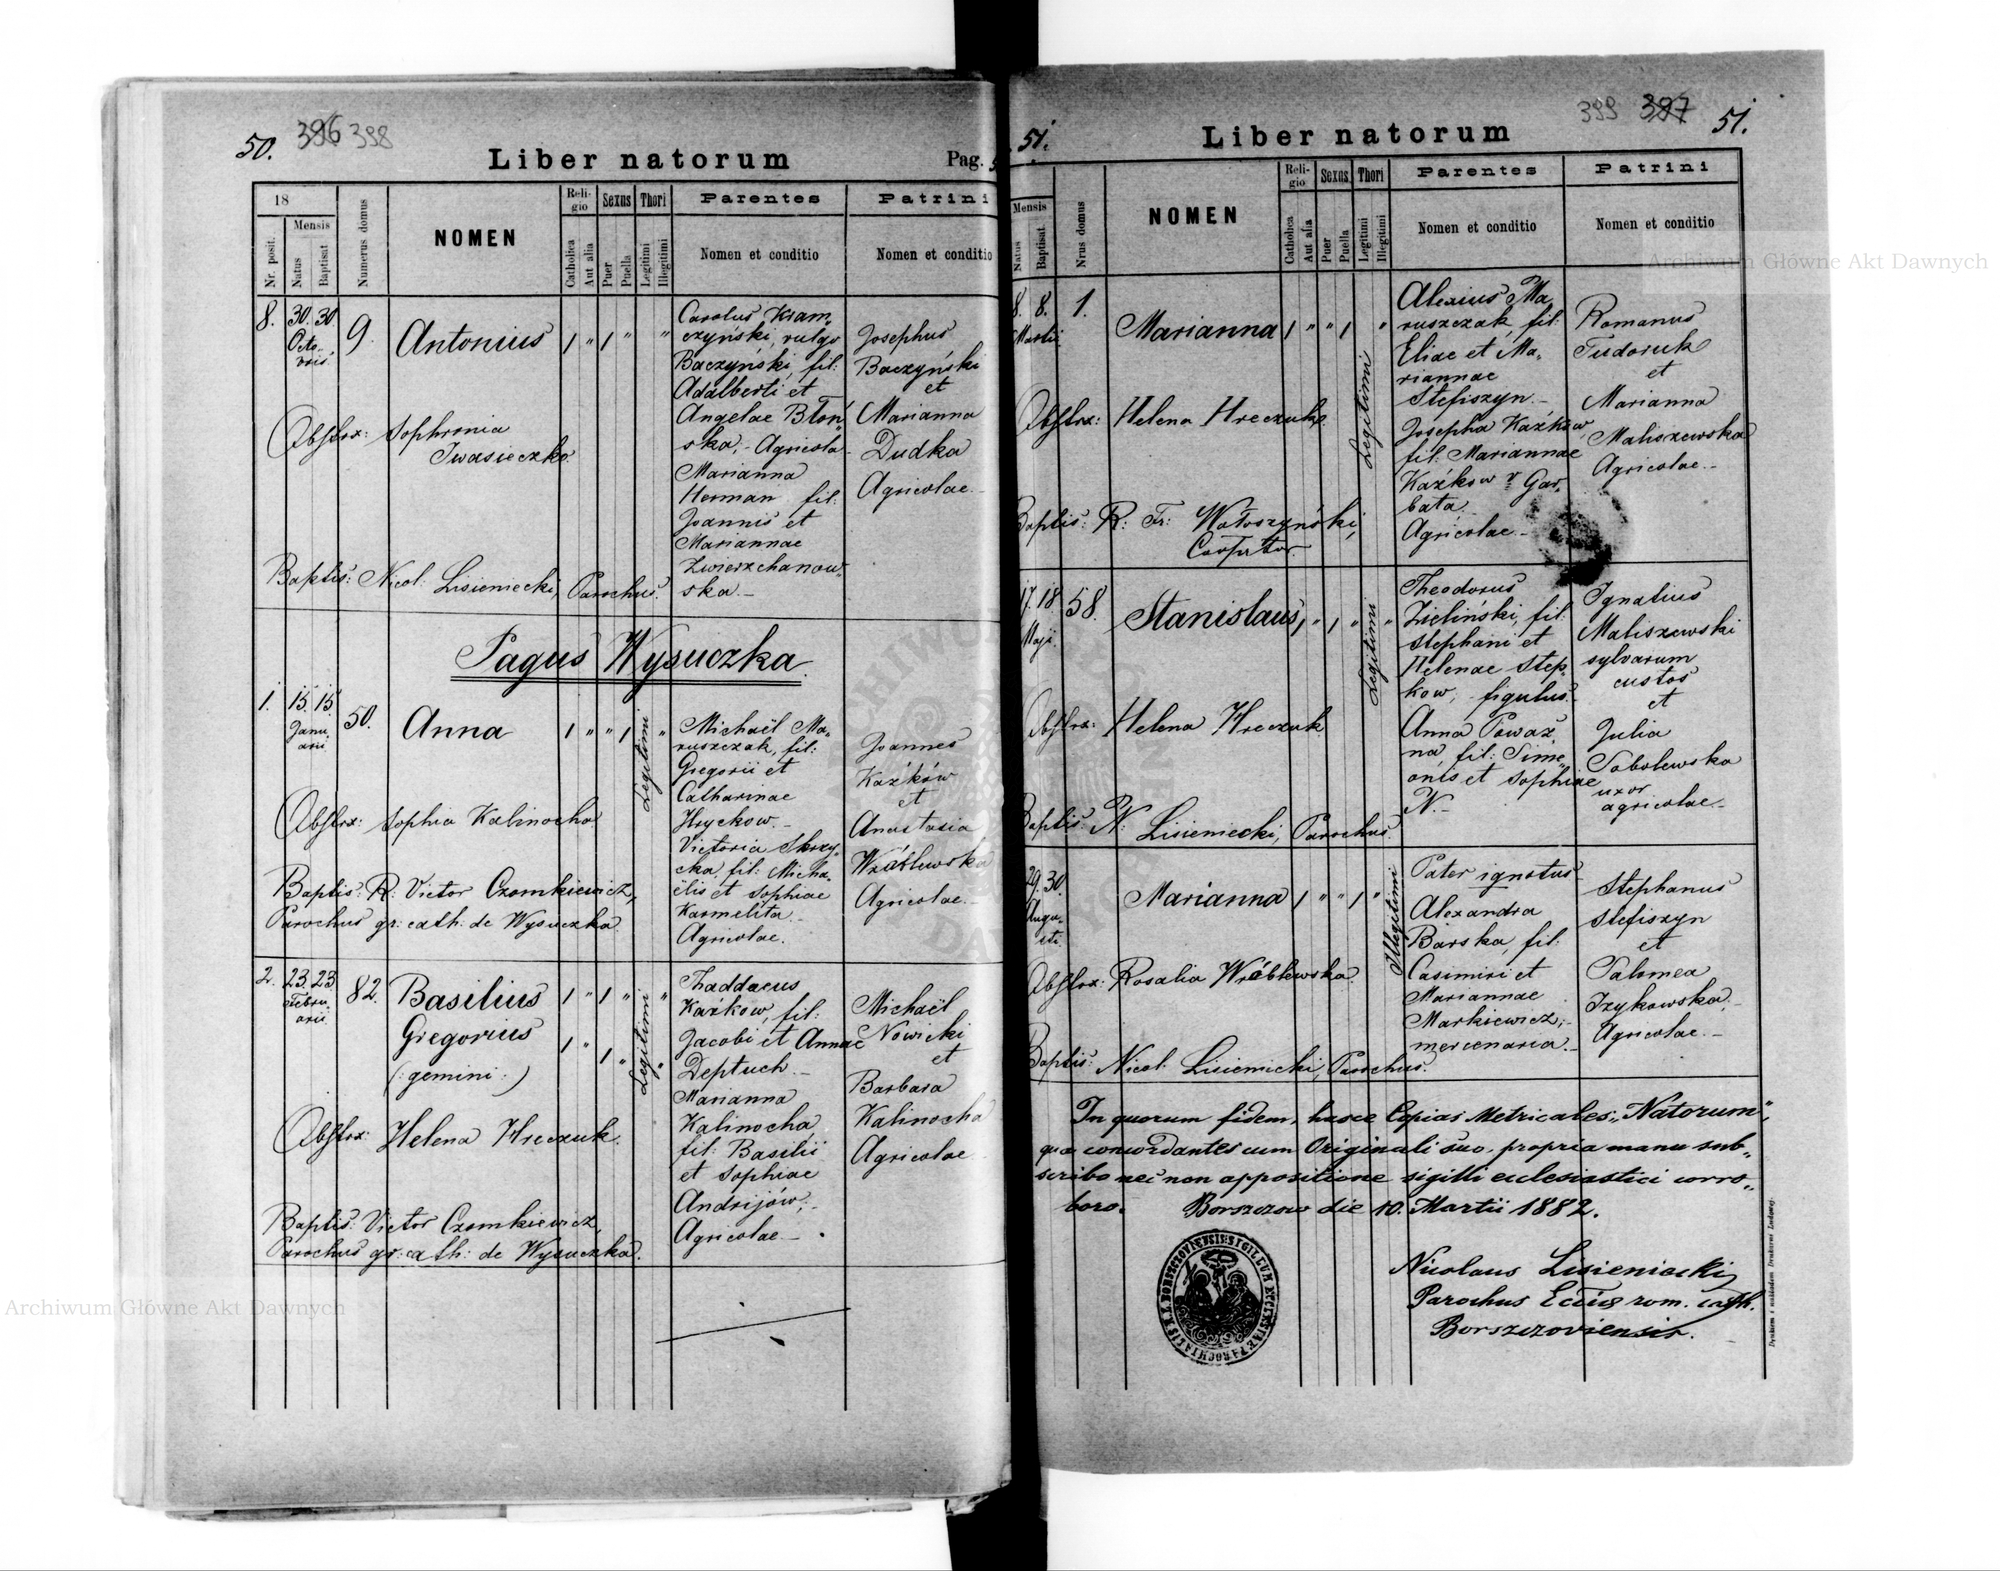 50. 396 398
Liber natorum
Pag.
18
Nr. posit.
Mensis
Natus
Baptisat
Numerus domus
NOMEN
Reli-
gio
Catholica
Aut alia
Sexus
Puer
Puella
Thori
Legitimi
Illegitimi
Parentes
Nomen et conditio
Patrini
Nomen et conditio
8. 30. 30. 9. Antonius 1 " 1 " "
Octo-
bris
Carolus Kram-
czyński, vulgo
Baczyński, fil:
Adalberti et
Angelae Błoń
ska, - Agricola
Marianna
Herman fil:
Joannis et
Mariannae
Zwierzchanow-
ska.-
Josephus
Baczyński
et
Marianna
Dudka
Agricolae.-
Obstrx: Sophronia
Iwasieczko
Baptis: Nicol: Lisieniecki, Parochus.
Pagus Wysuczka.
1. 15. 15. 50. Anna 1 " " 1 "
Janu-
arii
Legitimi
Michaël Ma-
ruszczak, fil:
Gregorii et
Catharinae
Hryckow.-
Victoria Skrzy-
cka, fil: Micha-
ëlis et Sophiae
Karmelita.-
Agricolae.
Joannes
Kaźków
et
Anastasia
Wróblewska
Agricolae.-
Obstrx: Sophia Kalinocha
Baptis: R: Victor Czomkiewicz,
Parochus gr: cath: de Wysuczka.
2. 23. 23. 82. Basilius 1 " 1 " "
Febru-
arii
Gregorius 1 " 1 " "
(: gemini :)
Legitimi
Thaddaeus
Kaźkow, fil:
Jacobi et Annae
Deptuch.-
Marianna
Kalinocha
fil: Basilii
et Sophiae
Andrijów;-
Agricolae.-
Michaël
Nowicki
et
Barbara
Kalinocha
Agricolae
Obstrx: Helena Hreczuk.
Baptis: Victor Czomkiewicz,
Parochus gr: cath: de Wysuczka.
51. 399 397 51.
Liber natorum
Mensis
Natus
Baptisat.
Nrus domus
NOMEN
Reli-
gio
Catholica
Aut alia
Sexus
Puer
Puella
Thori
Legitimi
Illegitimi
Parentes
Nomen et conditio
Patrini
Nomen et conditio
8. 8. 1. Marianna 1 " " 1 "
Martii
Legitimi
Alexius Ma-
ruszczak, fil:
Eliae et Ma-
riannae
Stefiszyn.-
Josepha Kaźków,
fil: Mariannae
Kaźkow v Gar-
bata.
Agricolae.-
Romanus
Tudoruk
et
Marianna
Maliszewska
Agricolae.-
Obstrx: Helena Hreczuk.
Baptis: R: Fr: Wołoszyński,
Cooptor.
17. 18 58. Stanislaus, 1 " 1 " "
Maji
Legitimi
Theodorus
Zieliński, fil:
Stephani et
Helenae Step-
kow; figulus.
Anna Powaź
na, fil: Sime-
onis et Sophiae
N.-
Ignatius
Maliszewski
sylvarum
custos
et
Julia
Sobolewska
uxor
agricolae.-
Obstrx: Helena Hreczuk
Baptis: N: Lisieniecki, Parochus.
29. 30. Marianna 1 " " 1 "
Augu-
sti.
Illegitimi
Pater ignotus
Alexandra
Barska, fil:
Casimiri et
Mariannae
Markiewicz;-
mercenaria.-
Stephanus
Stefiszyn
et
Salomea
Izykowska,-
Agricolae.-
Obstrx: Rosalia Wróblewska
Baptis: Nicol: Lisieniecki, Parochus.
In quorum fidem, hasce Copias Metricales „Natorum",
qua concordantes cum Originali suo, propria manu sub-
scribo nec non appositione sigilli ecclesiastici corro-
boro. Borszczow die 10. Martii 1882.
Nicolaus Lisieniecki
Parochus Eccliae rom. cath.
Borszczoviensis.
Drukiem i nakładem Drukarni Ludowej.
Archiwum Główne Akt Dawnych
Archiwum Główne Akt Dawnych